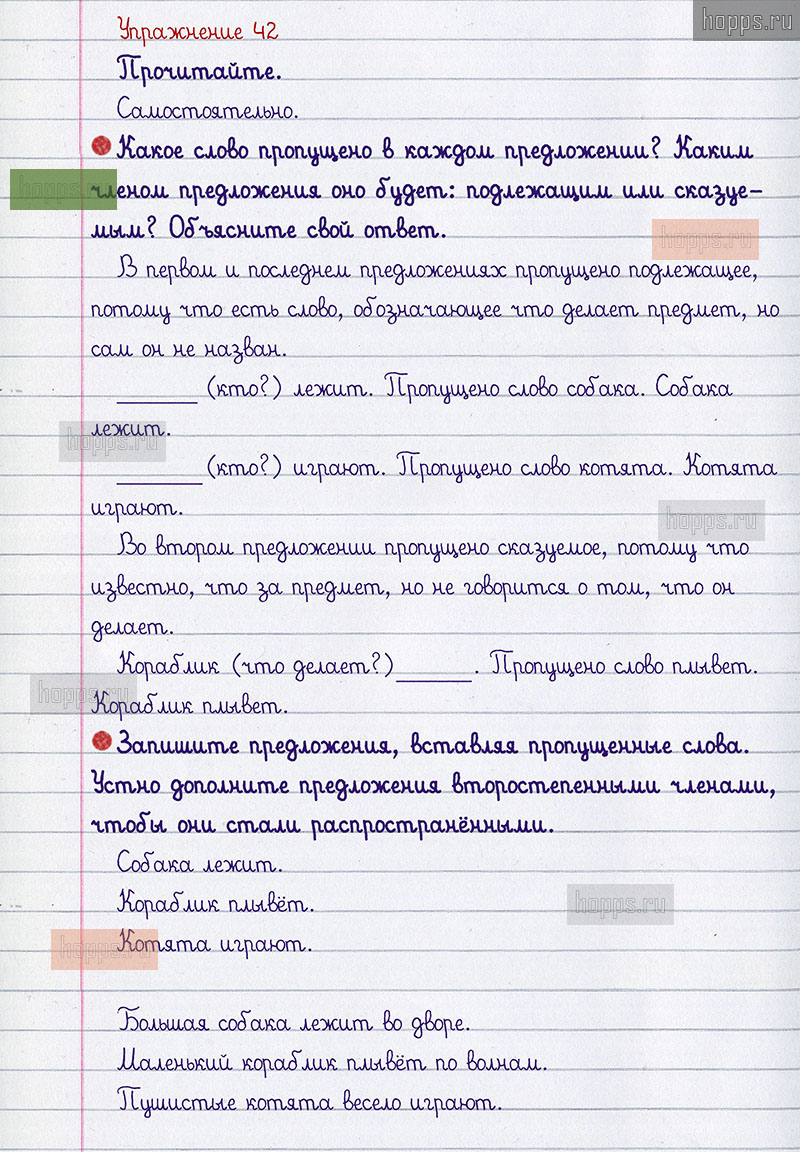 hopps.ru
Упражнение 42
Прочитайте.
Самостоятельно.
Какое слово пропущено в каждом предложении? Каким
членом предложения оно будет: подлежащим или сказуе-
hopps.ru
мым? Объясните свой ответ.
hopps.ru
В первом и последнем предложениях пропущено подлежащее,
потому что есть слово, обозначающее что делает предмет, но
сам он не назван.
______ (кто?) лежит. Пропущено слово собака. Собака
лежит.
hopps.ru
______ (кто?) играют. Пропущено слово котята. Котята
играют.
hopps.ru
Во втором предложении пропущено сказуемое, потому что
известно, что за предмет, но не говорится о том, что он
делает.
Кораблик (что делает?)______. Пропущено слово плывет.
hopps.ru
Кораблик плывет.
Запишите предложения, вставляя пропущенные слова.
Устно дополните предложения второстепенными членами,
чтобы они стали распространёнными.
Собака лежит.
Кораблик плывёт.
hopps.ru
Котята играют.
hopps.ru
Большая собака лежит во дворе.
Маленький кораблик плывёт по волнам.
Пушистые котята весело играют.